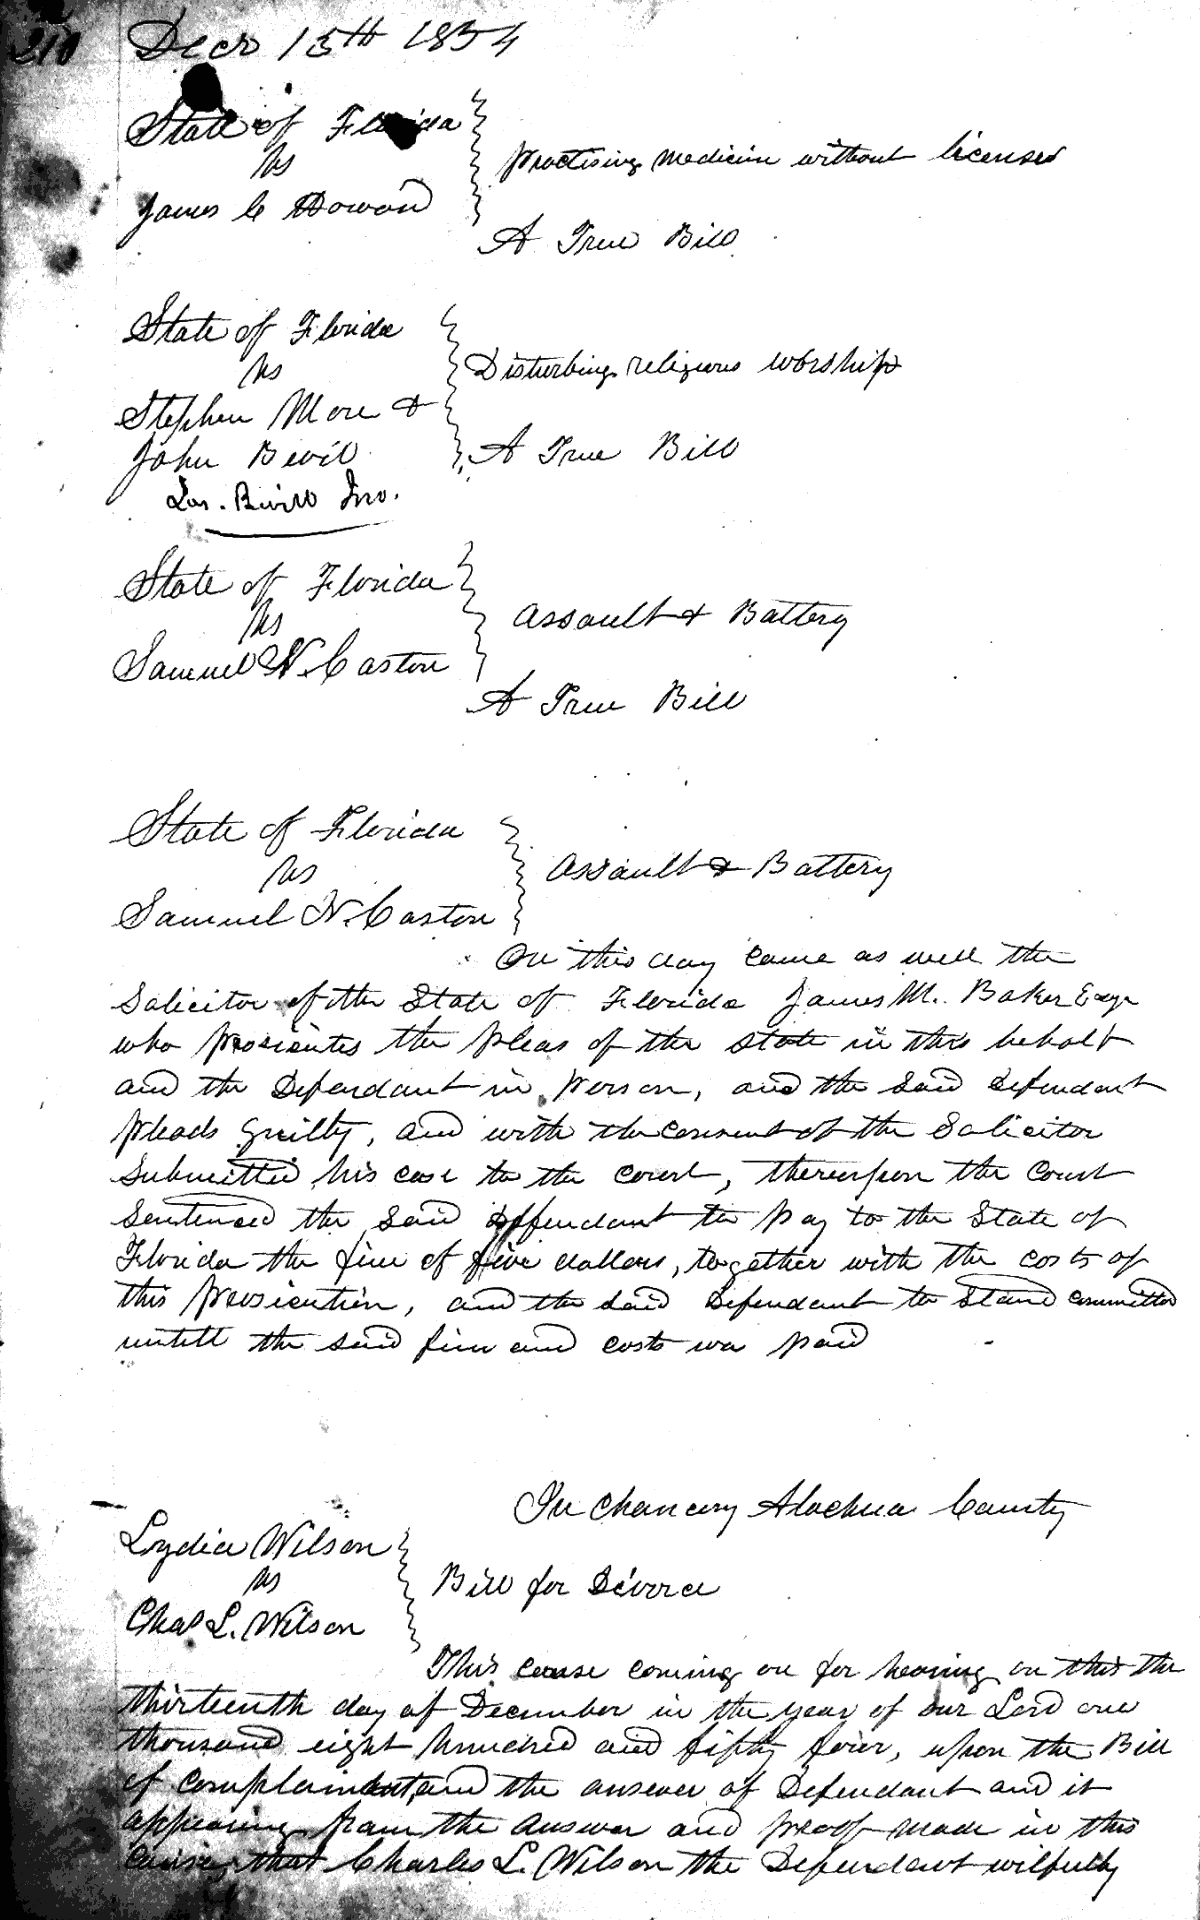 210 Decr 13th 1854
State of Florida
vs
practising medicine without license
James C Howard
A True Bill
State of Florida
vs
Disturbing religious worship
Stephen More &
John Bevil
A True Bill
State of Florida
vs
Assault & Battery
Samuel N. Caston
A True Bill
State of Florida
vs
Assault & Battery
Samuel N. Caston
On this day came as well the
Solicitor of the State of Florida James M. Baker Esqr
who prosicutes the pleas of the state in this behalf
and the Defendant in person, and the said defendant
pleads guilty, and with the consent of the Solicitor
submitted his case to the court, thereupon the court
sentenced the said deffendant to pay to the State of
Florida the fine of five dollars, together with the costs of
this prosicution, and the said Defendant to stand committed
untill the said fine and costs was paid
In Chancery Alachua County
Lydia Wilson
vs
Bill for Divorce
Chas L. Wilson
This cause coming on for hearing on this the
thirteenth day of December in the year of our Lord one
thousand eight hundred and fifty four, upon the Bill
of complaint and the answer of Defendant and it
appearing from the answer and proof made in this
cause, that Charles L. Wilson the Defendant wilfully